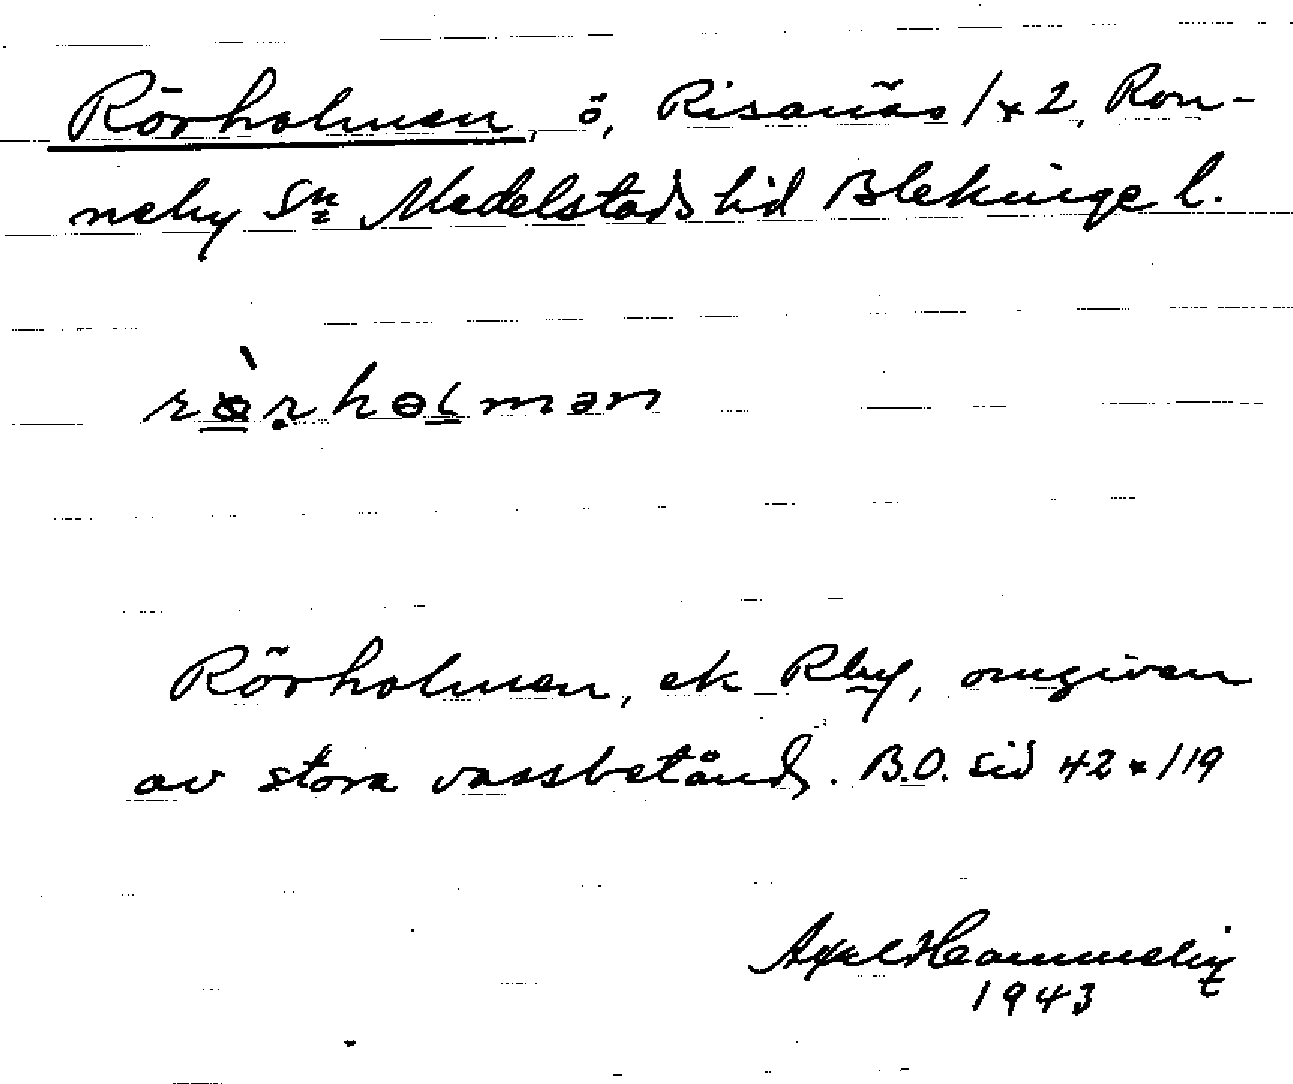 Rörholmen, ö, Risanäs 1+2, Ron-
neby Sn Medelstads hd Blekinge l.
rɵ̀rhɵlmən
Rörholmen, ek Rby, omgiven
av stora vassbestånd. B.O. sid 42 + 119
Axel
1943